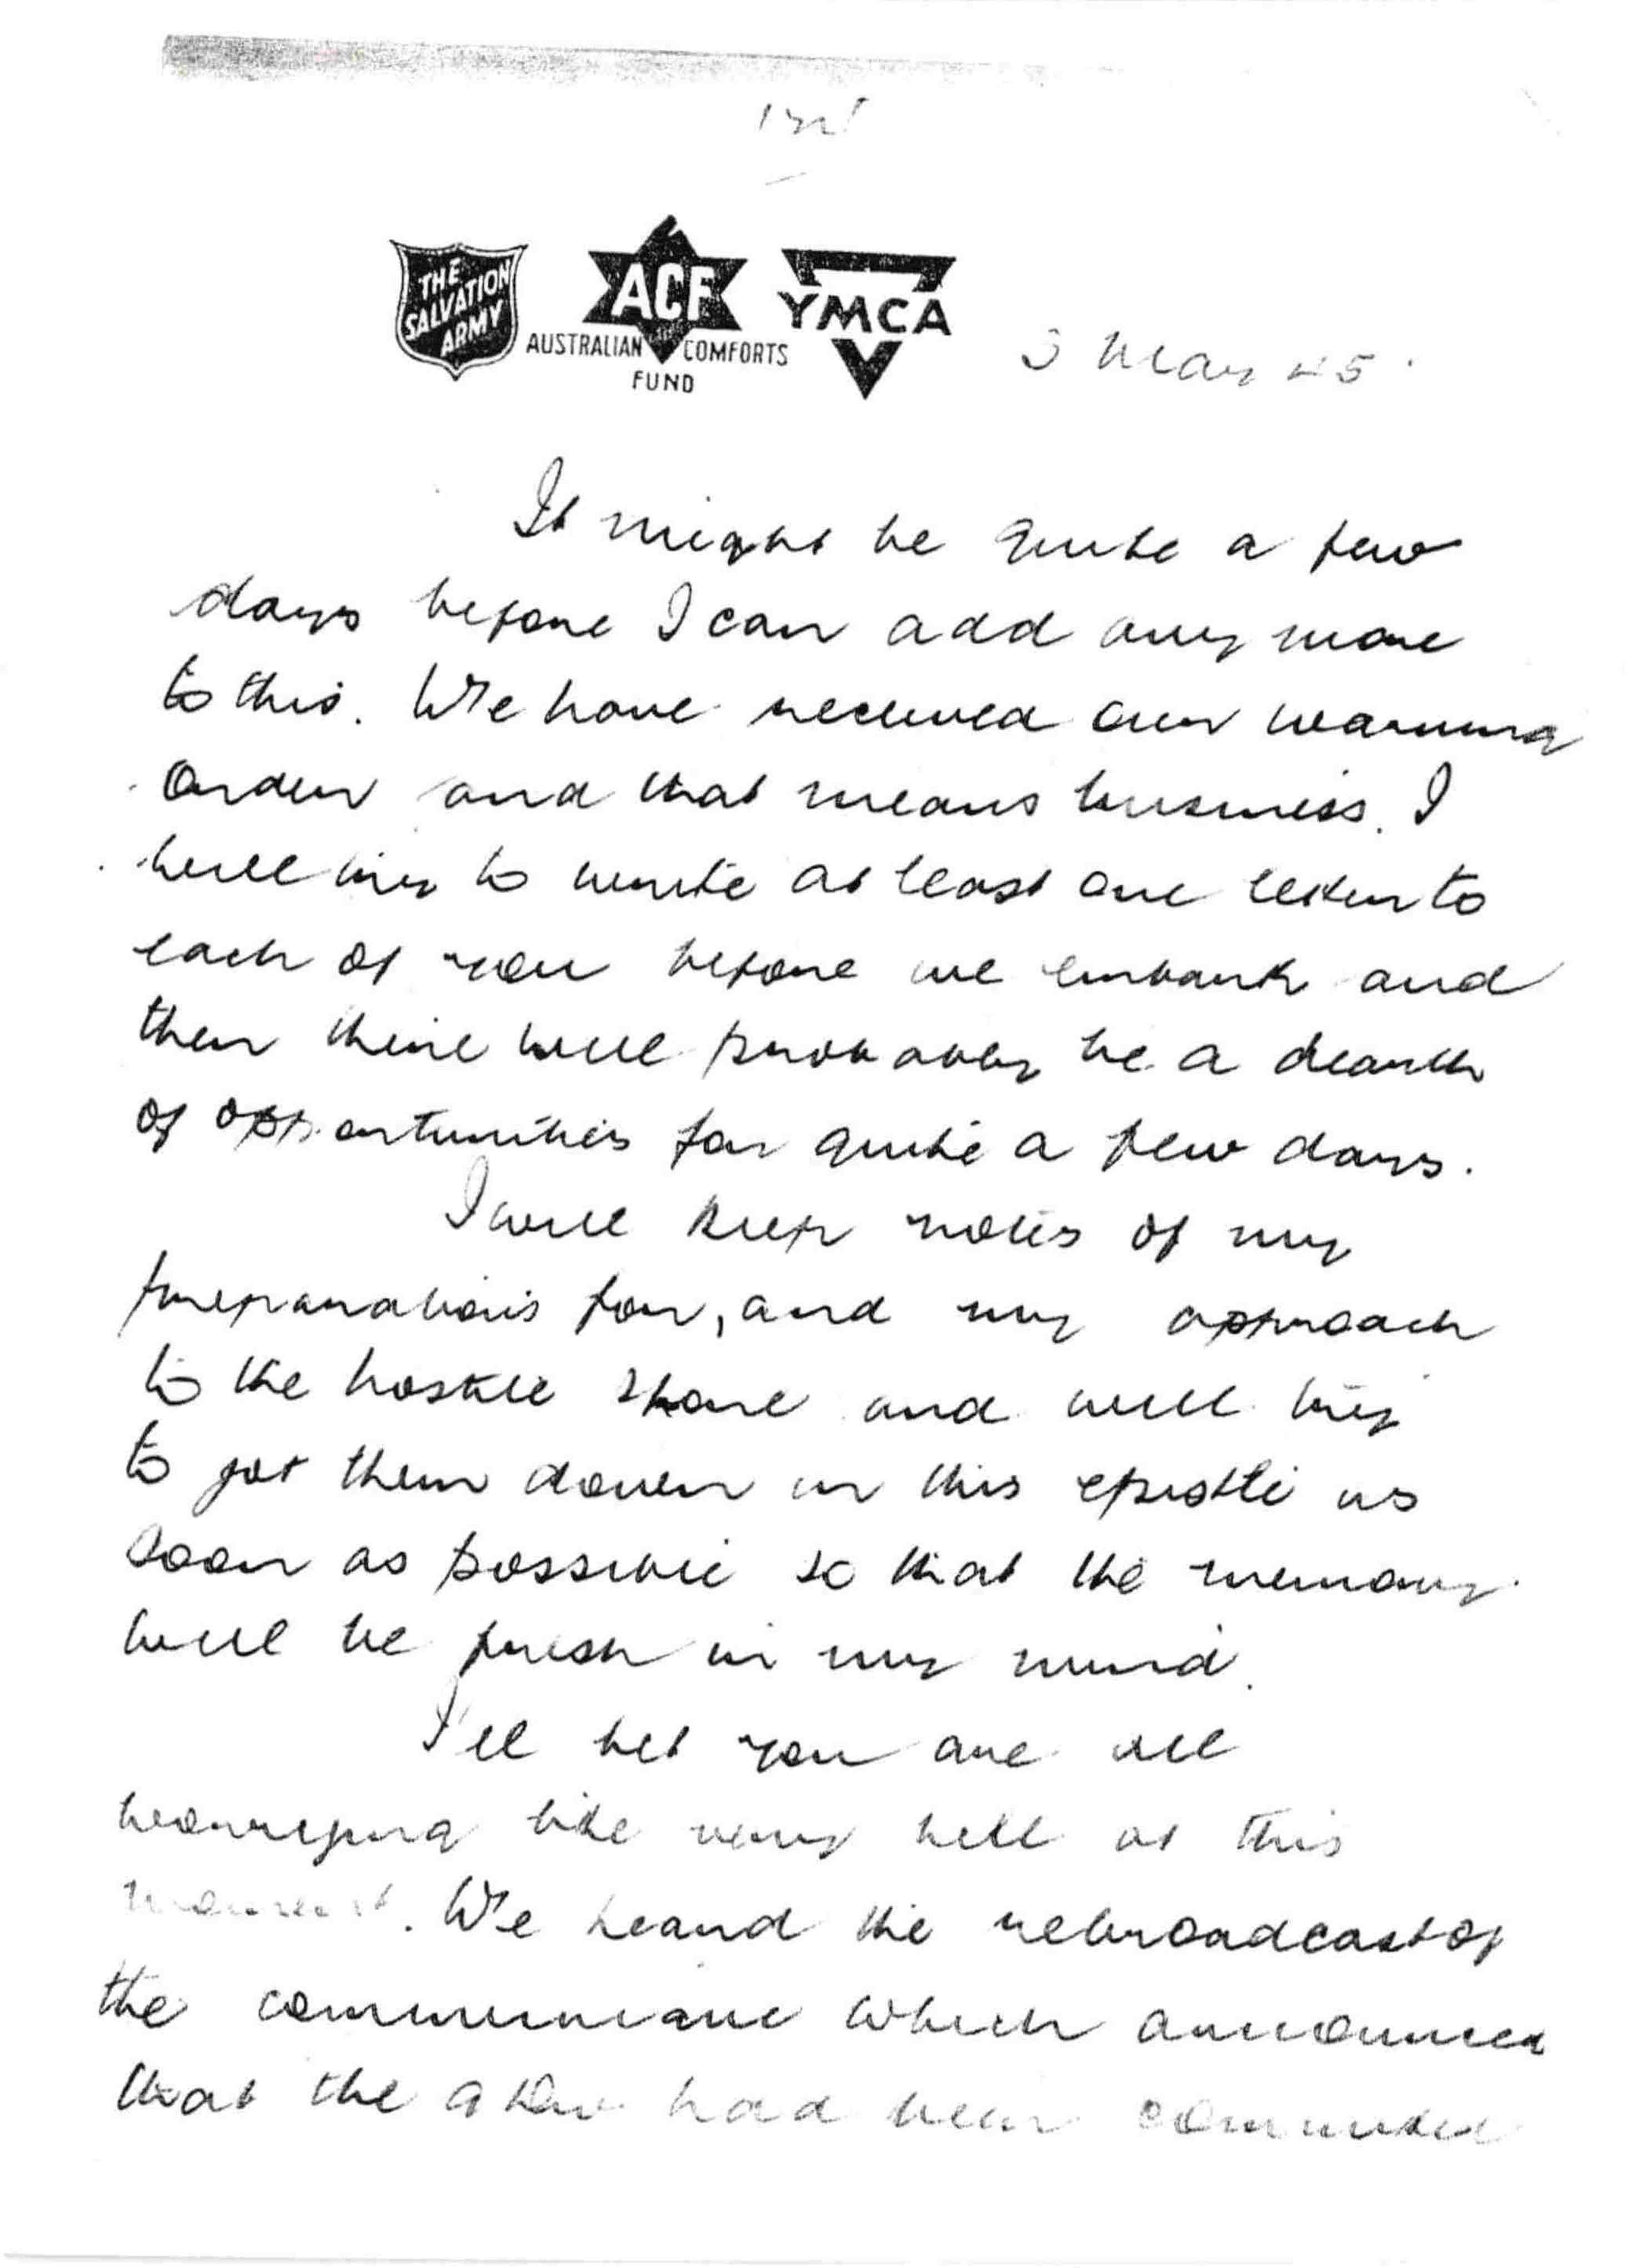 THE
SALVATION
ARMY
ACF
AUSTRALIAN COMFORTS
FUND
YMCA
3 May 45.
It might be quite a few
days before I can add any more
to this. We have received our warning
Order and that means business. I
will try to write at least one letter to
each of you before we embark and
then there will probably be a dearth
of opportunities for quite a few days.
I will keep notes of my
preparations for, and my approach
to the hostile shore and will try
to jot them down in this epistle as
soon as possible so that the memory
will be fresh in my mind.
I'll bet you are all
worrying like very hell at this
moment. We heard the rebroadcast of
the communique which announced
that the 9 Div had been committed